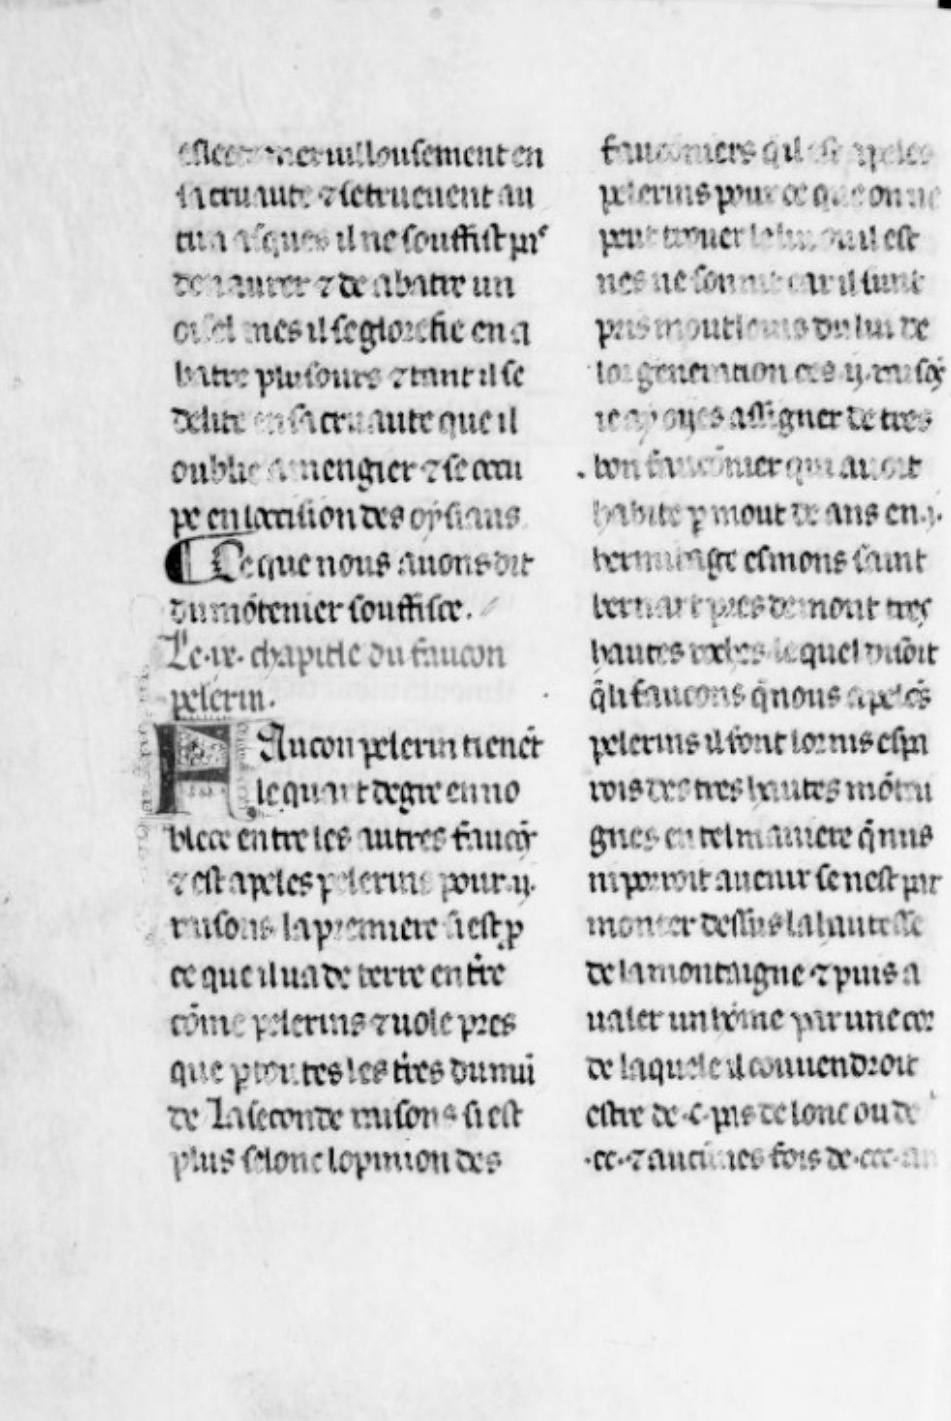 meruillousement en
sa cruaute ⁊ se trueuent au
il ne souffist pas
de naurer ⁊ de abatre un
oisel mes il se glorefie en a
batre plusours ⁊ tant il se
delite en sa cruaute que il
oublie a mengier ⁊ se occu
pe en loccision des oysiaus
Ce que nous auons dit
du mōtenier souffisce.
Le .ix. chapitle du faucon
pelerin.
Faucon pelerin tienēt
le quart degre en no
blece entre les autres faucōs
⁊ est apeles pelerins pour .ij.
raisons la premiere si est ꝑ
ce que il ua de terre en tr̄e
cōme pelerins ⁊ uole pres
que ꝑ toutes les tr̄es du mūī
de La seconde raisons si est
plus selonc lopinion des
fauconiers q̇ il est apeles
pelerins pour ce que on ne
peut trouer le lui ou il est
nes ne son nit car il sunt
pris mout loins du lui de
lor generation ces .ij. raisōs
ie ay oyes assigner de tres
bon faucōnier qui auoit
habite ꝑ mout de ans en .j.
hermitage es mons saint
bernart pres de mont tres
hautes roches le quel disoit
q̄ li faucons q̄ nous apelōs
pelerins il font lor nis es pa
rois des tres hautes mōtai
gnes en tel maniere q̄ nus
ni porroit auenir se nest par
monter dessus la hautesse
de la montaigne ⁊ puis a
ualer un hōme par une cor
de laquele il conuendroit
estre de .c. pas de lonc ou de
.cc. ⁊ aucunes fois de .ccc.